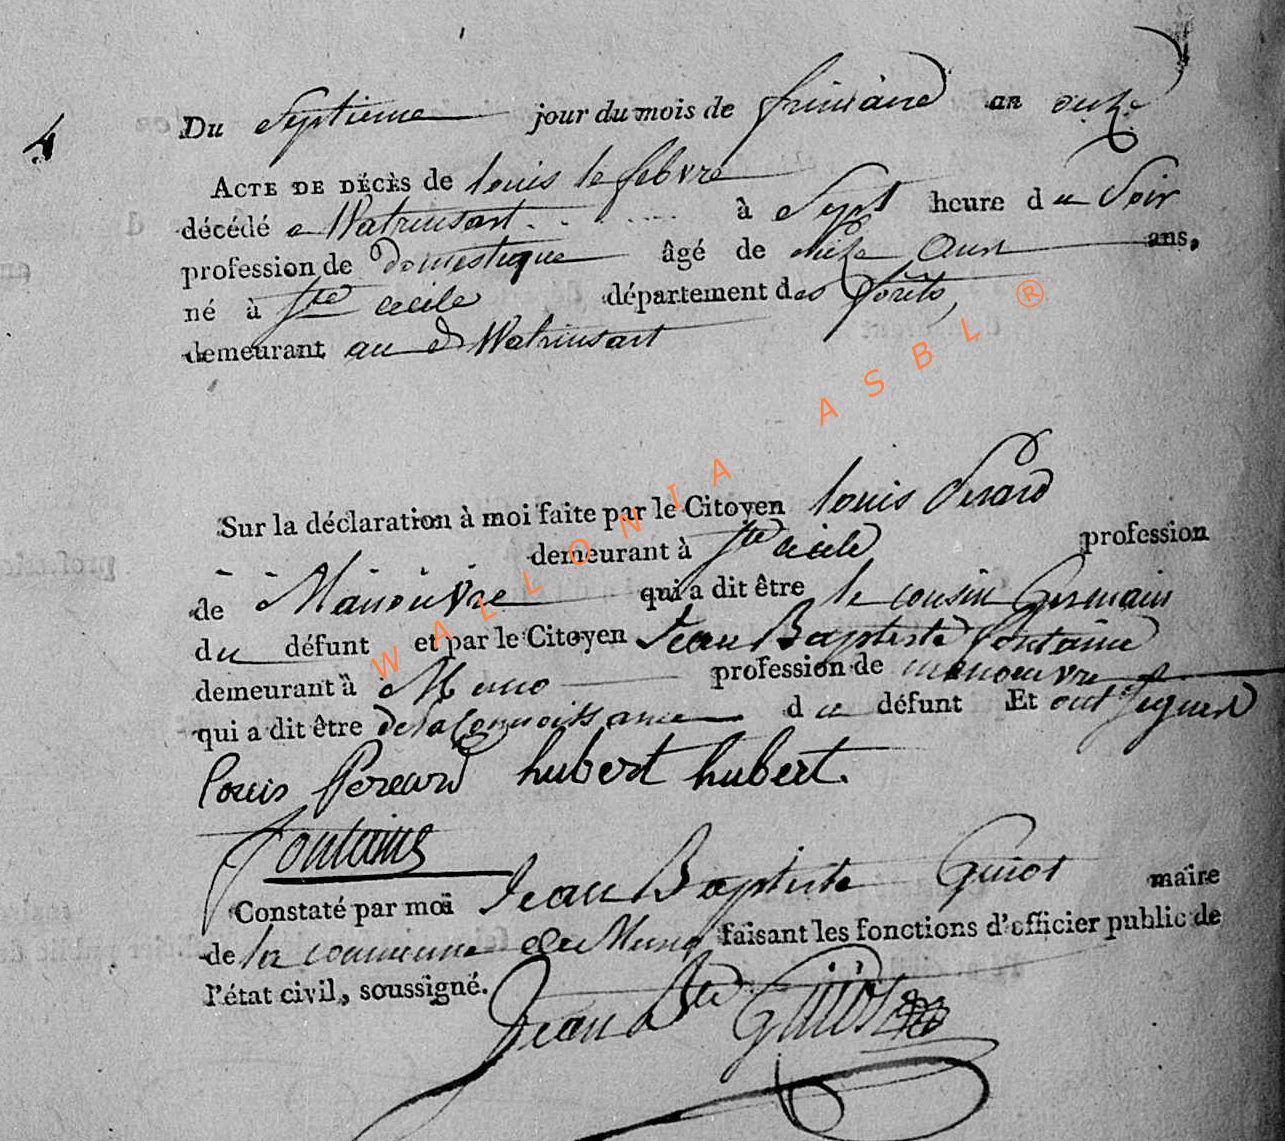 4
Du Septieme jour du mois de frimaire an onze
ACTE DE DÉCÈS de louis le febvre
décédé a Watrinsart à Sept heure du Soir
profession de domestique âgé de onze ans,
né à Ste cecile département des forêts,
demeurant au d Watrinsart
Sur la déclaration à moi faite par le Citoyen louis Perard
demeurant à Ste cecile profession
de Manouvre qui a dit être le cousin Germain
du défunt et par le Citoyen Jean Baptiste fontaine
demeurant à Muno profession de manoeuvre
qui a dit être de la Connoissance du défunt Et ont signé
louis Pereard hubert hubert.
fontaine
Constaté par moi Jean Baptiste Guiot maire
de la commune de Muno faisant les fonctions d'officier public de
l'état civil, soussigné.
Jean Bte Guiot
WALLONIA ASBL ®